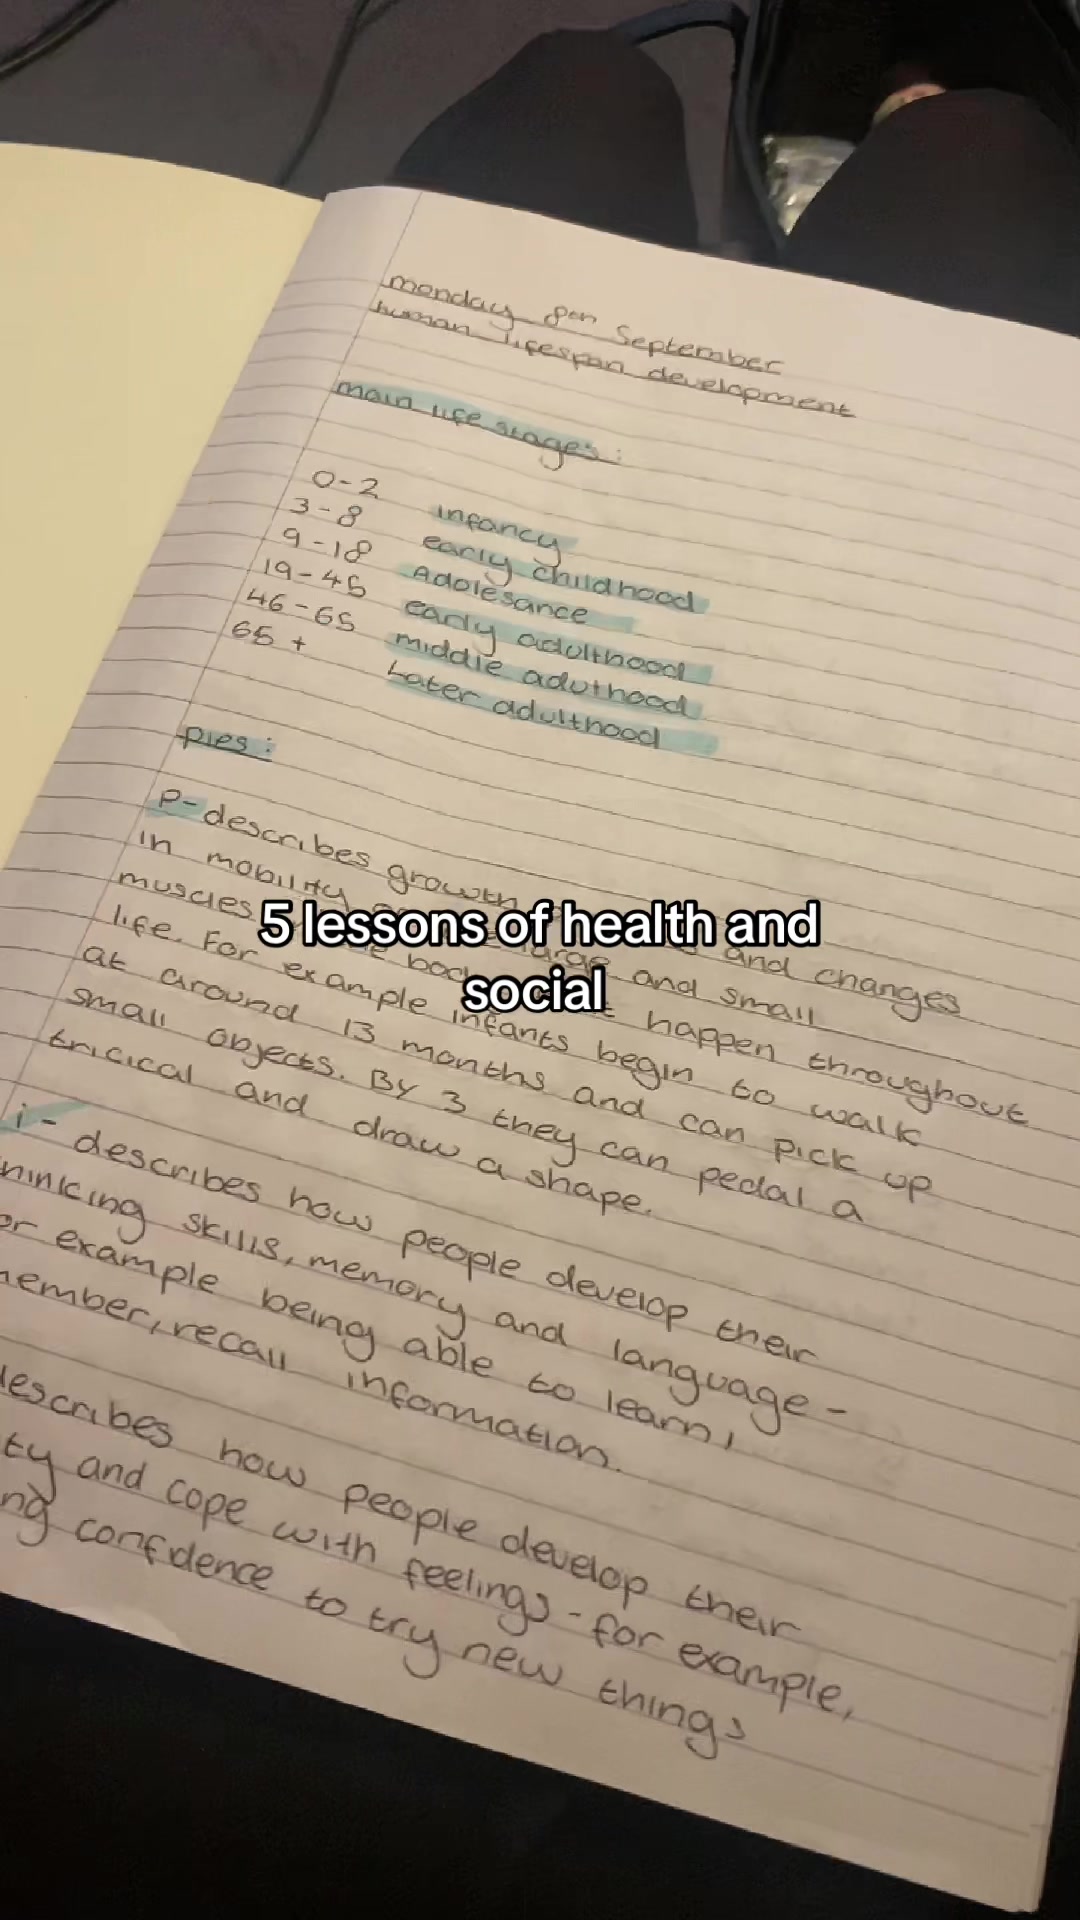 monday 8th September
human lifespan development
main life stages:
0-2 infancy
3-8 early childhood
9-18 Adolesance
19-45 early adulthood
46-65 middle aduthood
65+ Later adulthood
pies:
P- describes growth and changes
in mobility large and small
muscles happen throughout
life. For example infants begin to walk
at around 13 months and can pick up
small objects. By 3 they can pedal a
tricical and draw a shape.
i- describes how people develop their
thinking skills, memory and language -
example being able to learn,
recall information.
describes how people develop their
and cope with feelings - for example,
confidence to try new things
5 lessons of health and
social